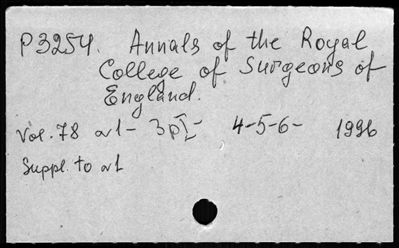 P3254. Annals of the Royal
College of Surgeons of
England.
Vol. 78 N1- 3pI- 4-5-6- 1996
Suppl. to N1